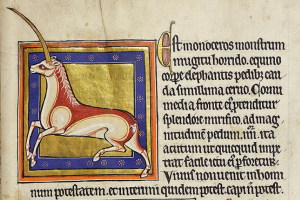 Est monoceros monstrum
mugitu horrido. equino
corpe elephantis pedib; cau
da simillima ceruo. Cornu
media fronte ei' ptenditur
splendore mirifico. ad mag
nitudinem pedum .iiii. ita
acutum ut quicquid impe
tat facile ictu ei' foretur.
Viuus non uenit in hom
num potestatem. et interimi quidem potest. capi ñ potest.